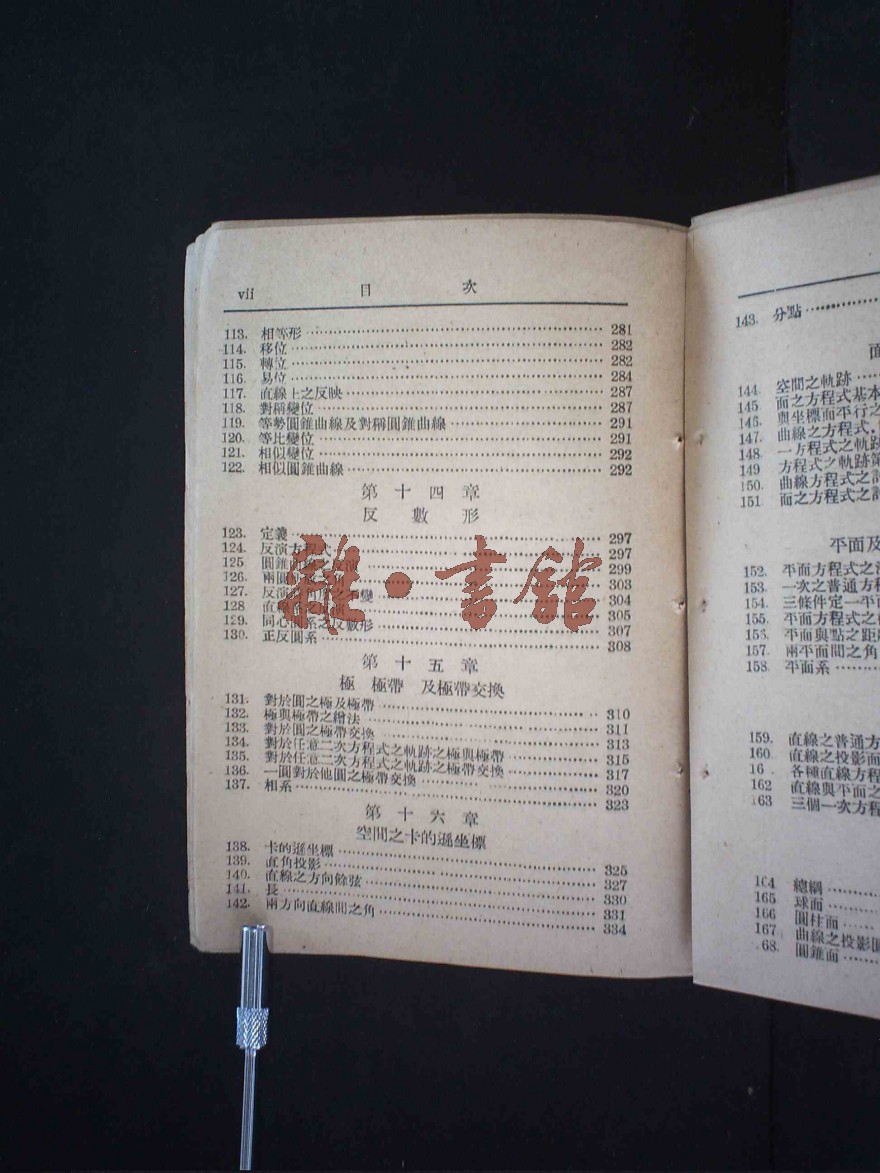 vii 目 次
113. 相等形 281
114. 移位 282
115. 轉位 282
116. 易位 284
117. 直線上之反映 287
118. 對稱變位 287
119. 等勢圓錐曲線及對稱圓錐曲線 291
120. 等比變位 291
121. 相似變位 292
122. 相似圓錐曲線 292
第十四章
反數形
123. 定義 297
124. 反演方程式 297
125 圓錐曲線 299
126. 303
127. 304
128 305
129. 同心圓系之反數形 307
130. 正反圓系 308
第十五章
極 極帶 及極帶交換
131. 對於圓之極及極帶 310
132. 極與極帶之繪法 311
133. 對於圓之極帶交換 313
134. 對於任意二次方程式之軌跡之極與極帶 315
135. 對於任意二次方程式之軌跡之極帶交換 317
136. 一圓對於他圓之極帶交換 320
137. 相系 323
第十六章
空間之卡的遜坐標
138. 卡的遜坐標 325
139. 直角投影 327
140. 直線之方向餘弦 330
141. 長 331
142. 兩方向直線間之角 334
雜·書館
143. 分點
面
144. 空間之軌跡
145 面之方程式基本
145. 與坐標面平行之
147. 曲線之方程式
148. 一方程式之軌跡
149 方程式之軌跡第
150. 曲線方程式之
151 面之方程式之
平面及
152. 平面方程式之
153. 一次之普通方程
154. 三條件定一平面
155. 平面方程式之
156. 平面與點之距
157. 兩平面間之角
158. 平面系
159. 直線之普通方
160. 直線之投影面
16 各種直線方程
162 直線與平面之
163 三個一次方程
164 總綱
165 球面
166 圓柱面
167 曲線之投影
68. 圓錐面